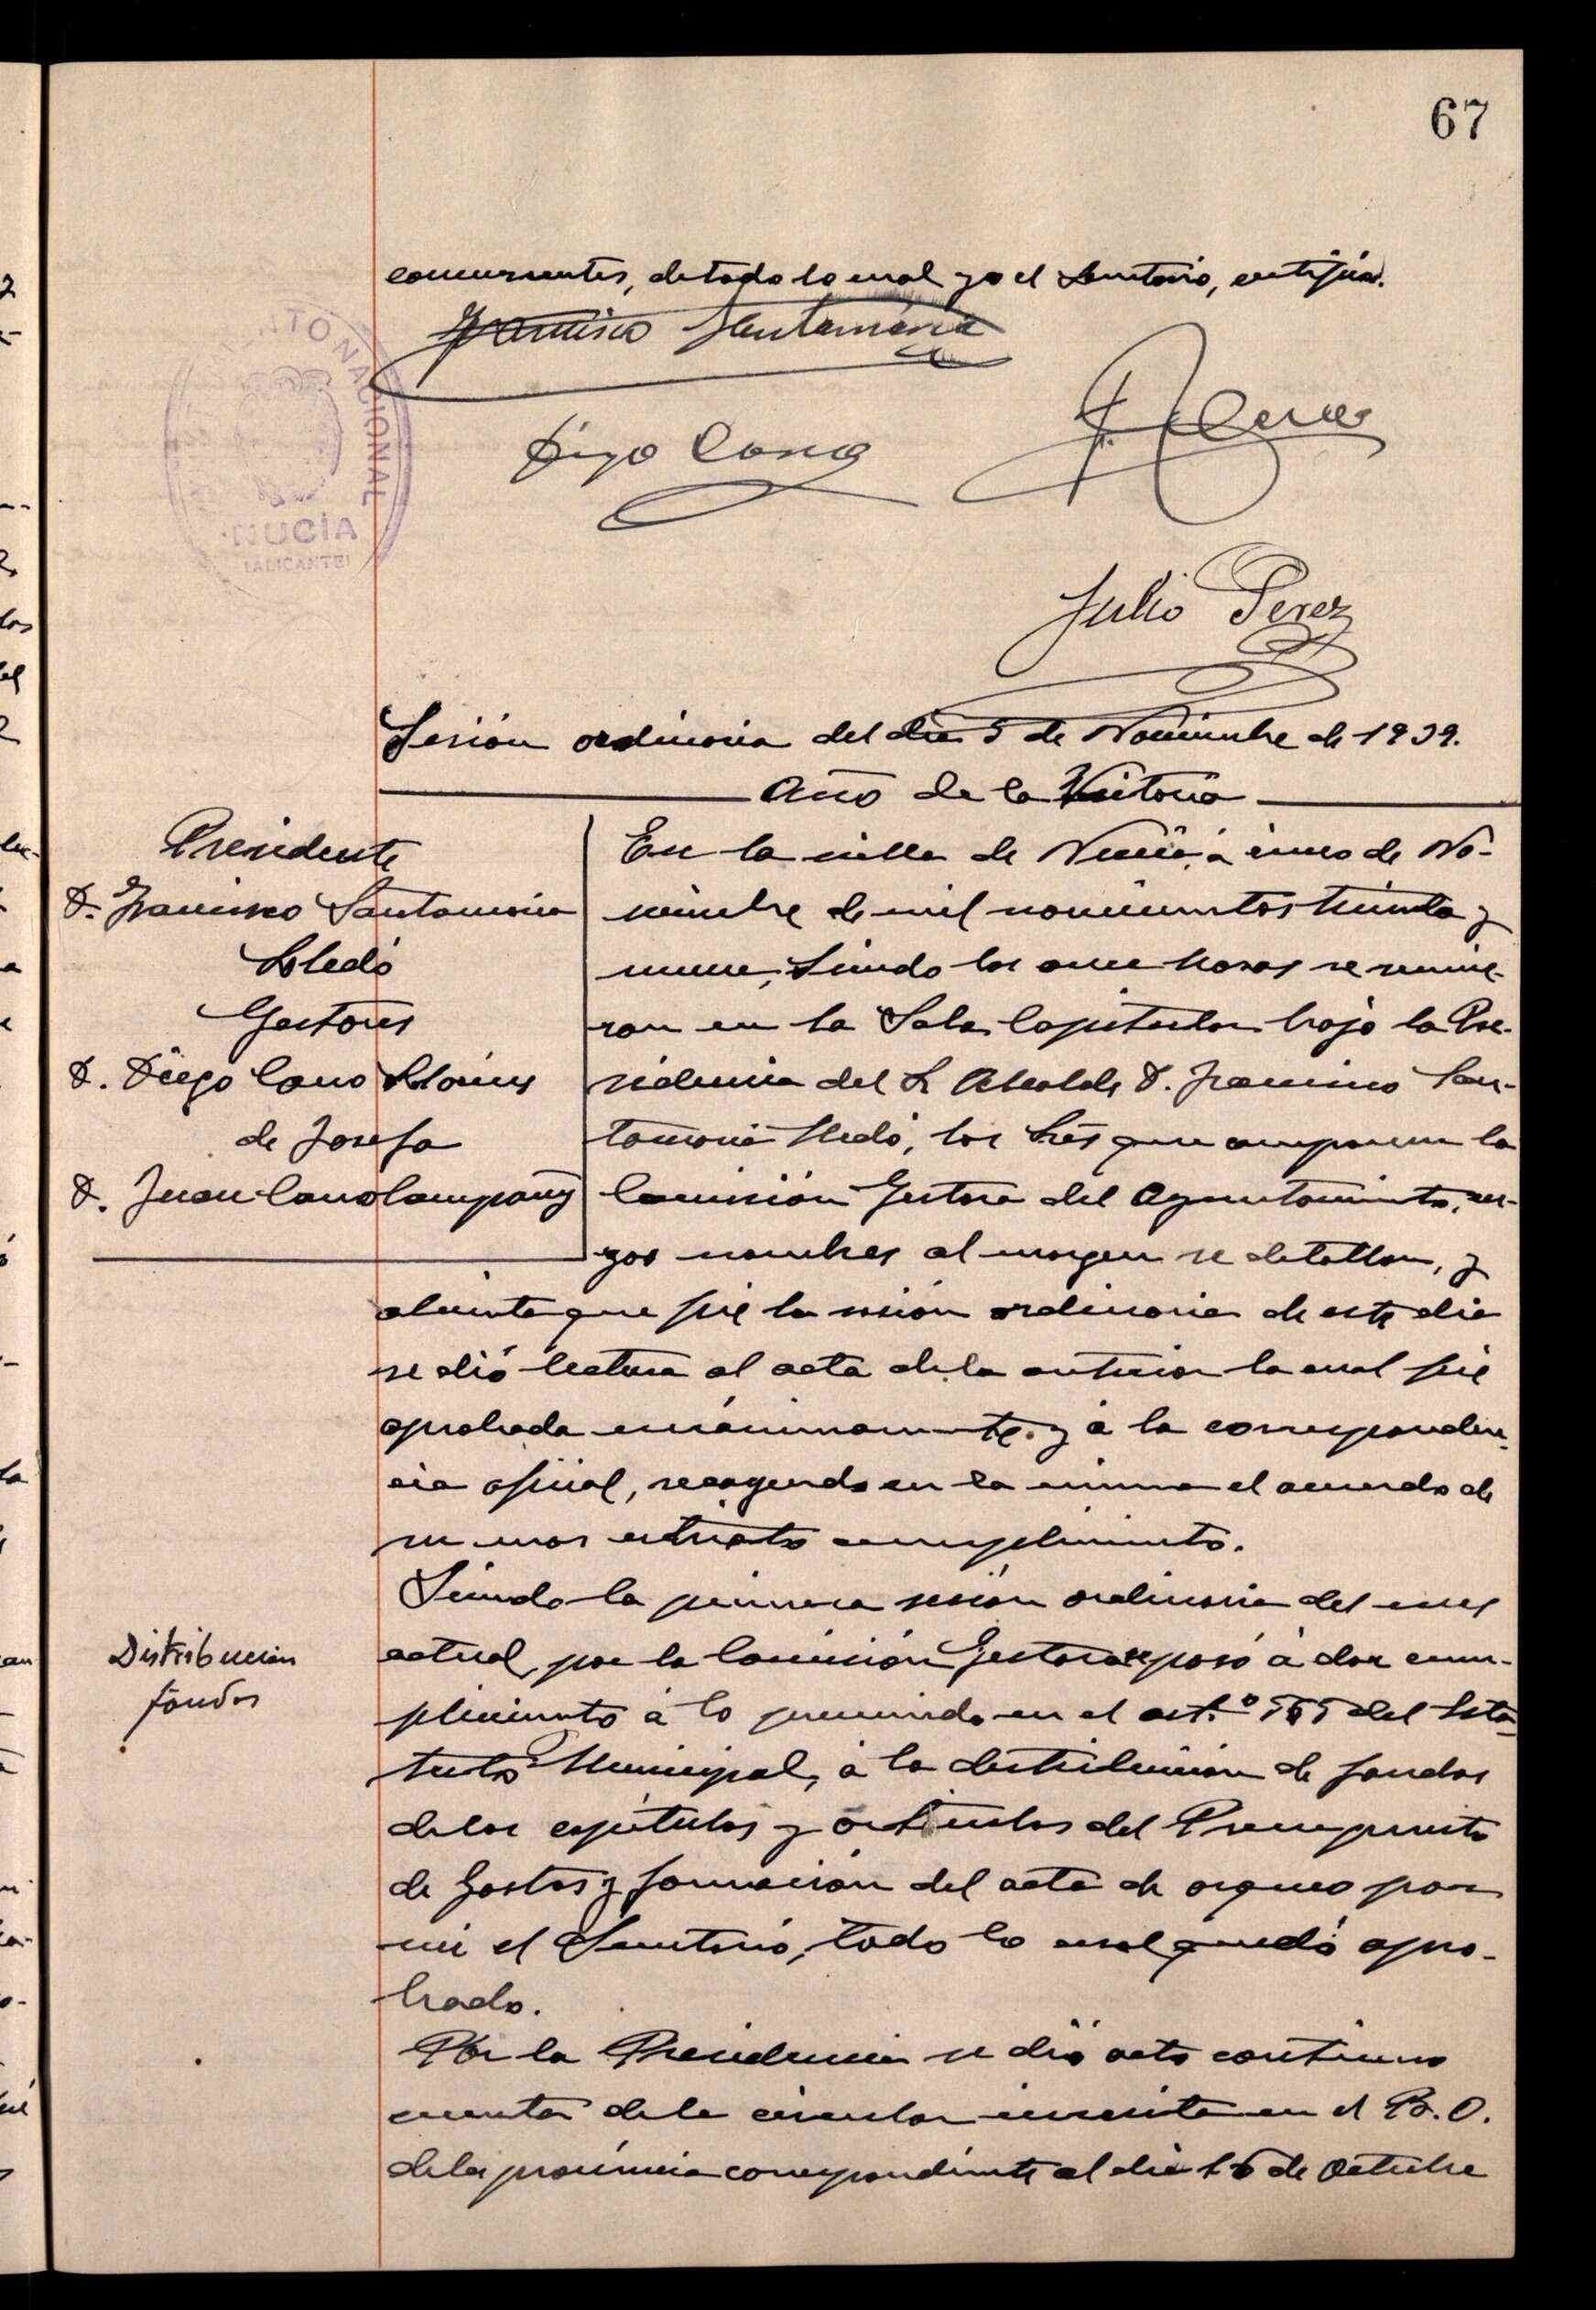 67
concurrentes, de todo lo cual yo el Secretario, certifico.
Francisco Santamaria
Diego Cano
Julio Perez
NACIONAL
NUCIA
(ALICANTE)
Sesión ordinaria del dia 5 de Noviembre de 1939.
Año de la Victoria
Presidente
D. Francisco Santamaria
Lledó
Gestores
D. Diego Cano Llorens
de Josefa
D. Juan Cano Compañy
En la villa de Nucia, a cinco de No-
viembre de mil novecientos treinta y
nueve, siendo las once horas se reunie-
ron en la Sala Capitular bajo la Pre-
sidencia del Sr Alcalde D. Francisco San-
tamaria Lledó, los Sres que componen la
Comisión Gestora del Ayuntamiento, cu-
yos nombres al margen se detallan, y
abierta que fué la sesión ordinaria de este dia
se dió lectura al acta de la anterior la cual fué
aprobada unánimamente y a la corresponden-
cia oficial, recayendo en la misma el acuerdo de
su mas estricto cumplimiento.
Distribucion
fondos
Siendo la primera sesión ordinaria del mes
actual, por la Comisión Gestora se pasó á dar cum-
plimiento a lo prevenido en el art.º del Esta-
tuto Municipal, a la distribución de fondos
de los capitulos y articulos del Presupuesto
de Gastos y formación del acta de arqueo por
mi el Secretario, todo lo cual quedó apro-
bado.
Por la Presidencia se dió acto continuo
cuenta de la circular inserta en el B.O.
de la provincia correspondiente al dia 16 de Octubre